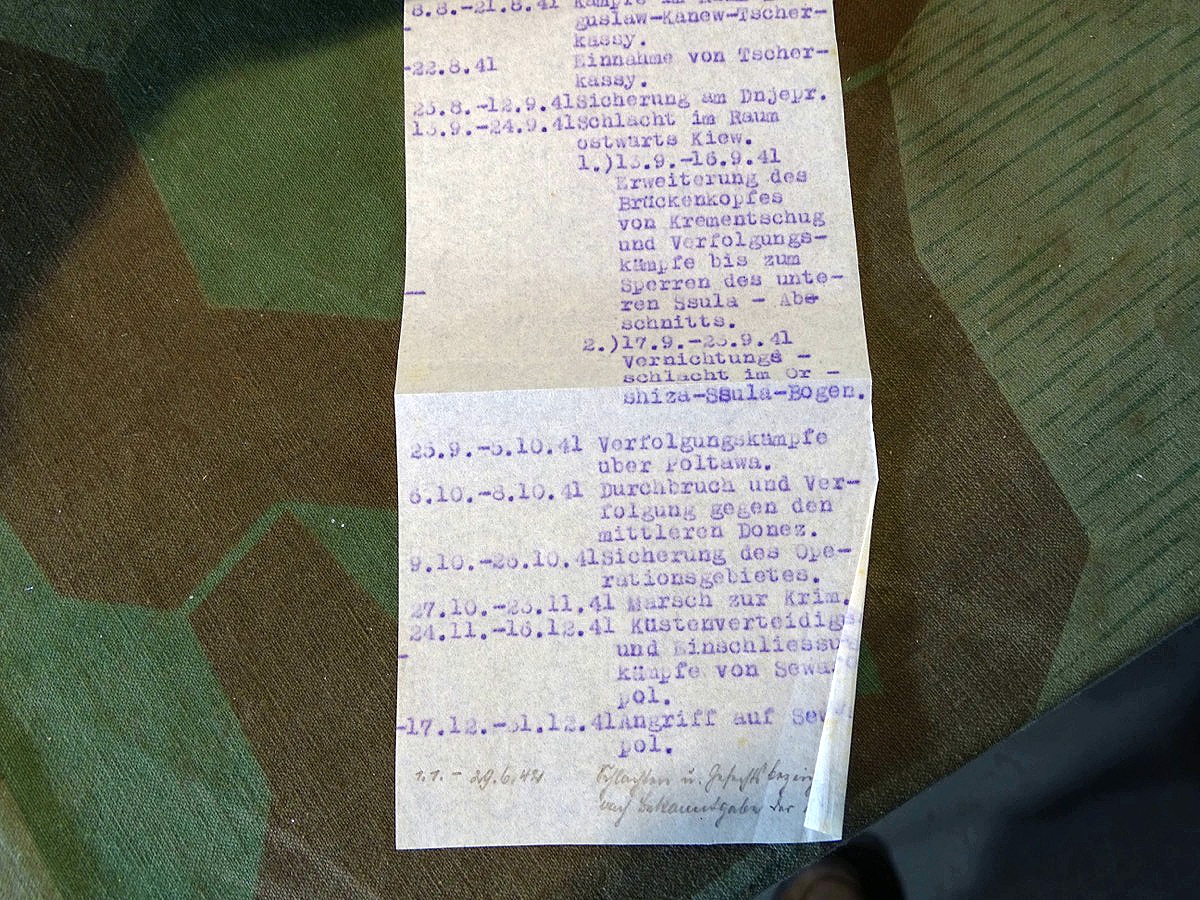 8.8.-21.8.41 Kämpfe im Raum
guslaw-Kanew-Tscher-
kassy.
-22.8.41 Einnahme von Tscher-
kassy.
23.8.-12.9.41Sicherung am Dnjepr.
13.9.-24.9.41Schlacht im Raum
ostwärts Kiew.
1.)13.9.-16.9.41
Erweiterung des
Brückenkopfes
von Krementschug
und Verfolgungs-
kämpfe bis zum
Sperren des unte-
ren Ssula - Abe
schnitts.
2.)17.9.-23.9.41
Vernichtungs -
schlacht im Or -
shiza-Ssula-Bogen.
25.9.-5.10.41 Verfolgungskämpfe
über Poltawa.
6.10.-8.10.41 Durchbruch und Ver-
folgung gegen den
mittleren Donez.
9.10.-26.10.41Sicherung des Ope-
rationsgebietes.
27.10.-23.11.41 Marsch zur Krim.
24.11.-16.12.41 Küstenverteidig
und Einschliessu
kämpfe von Sewa
pol.
-17.12.-31.12.41Angriff auf Sew
pol.
1.1. - 29.6.42 Schlachten u. Gefechts
nach Bekanntgabe der